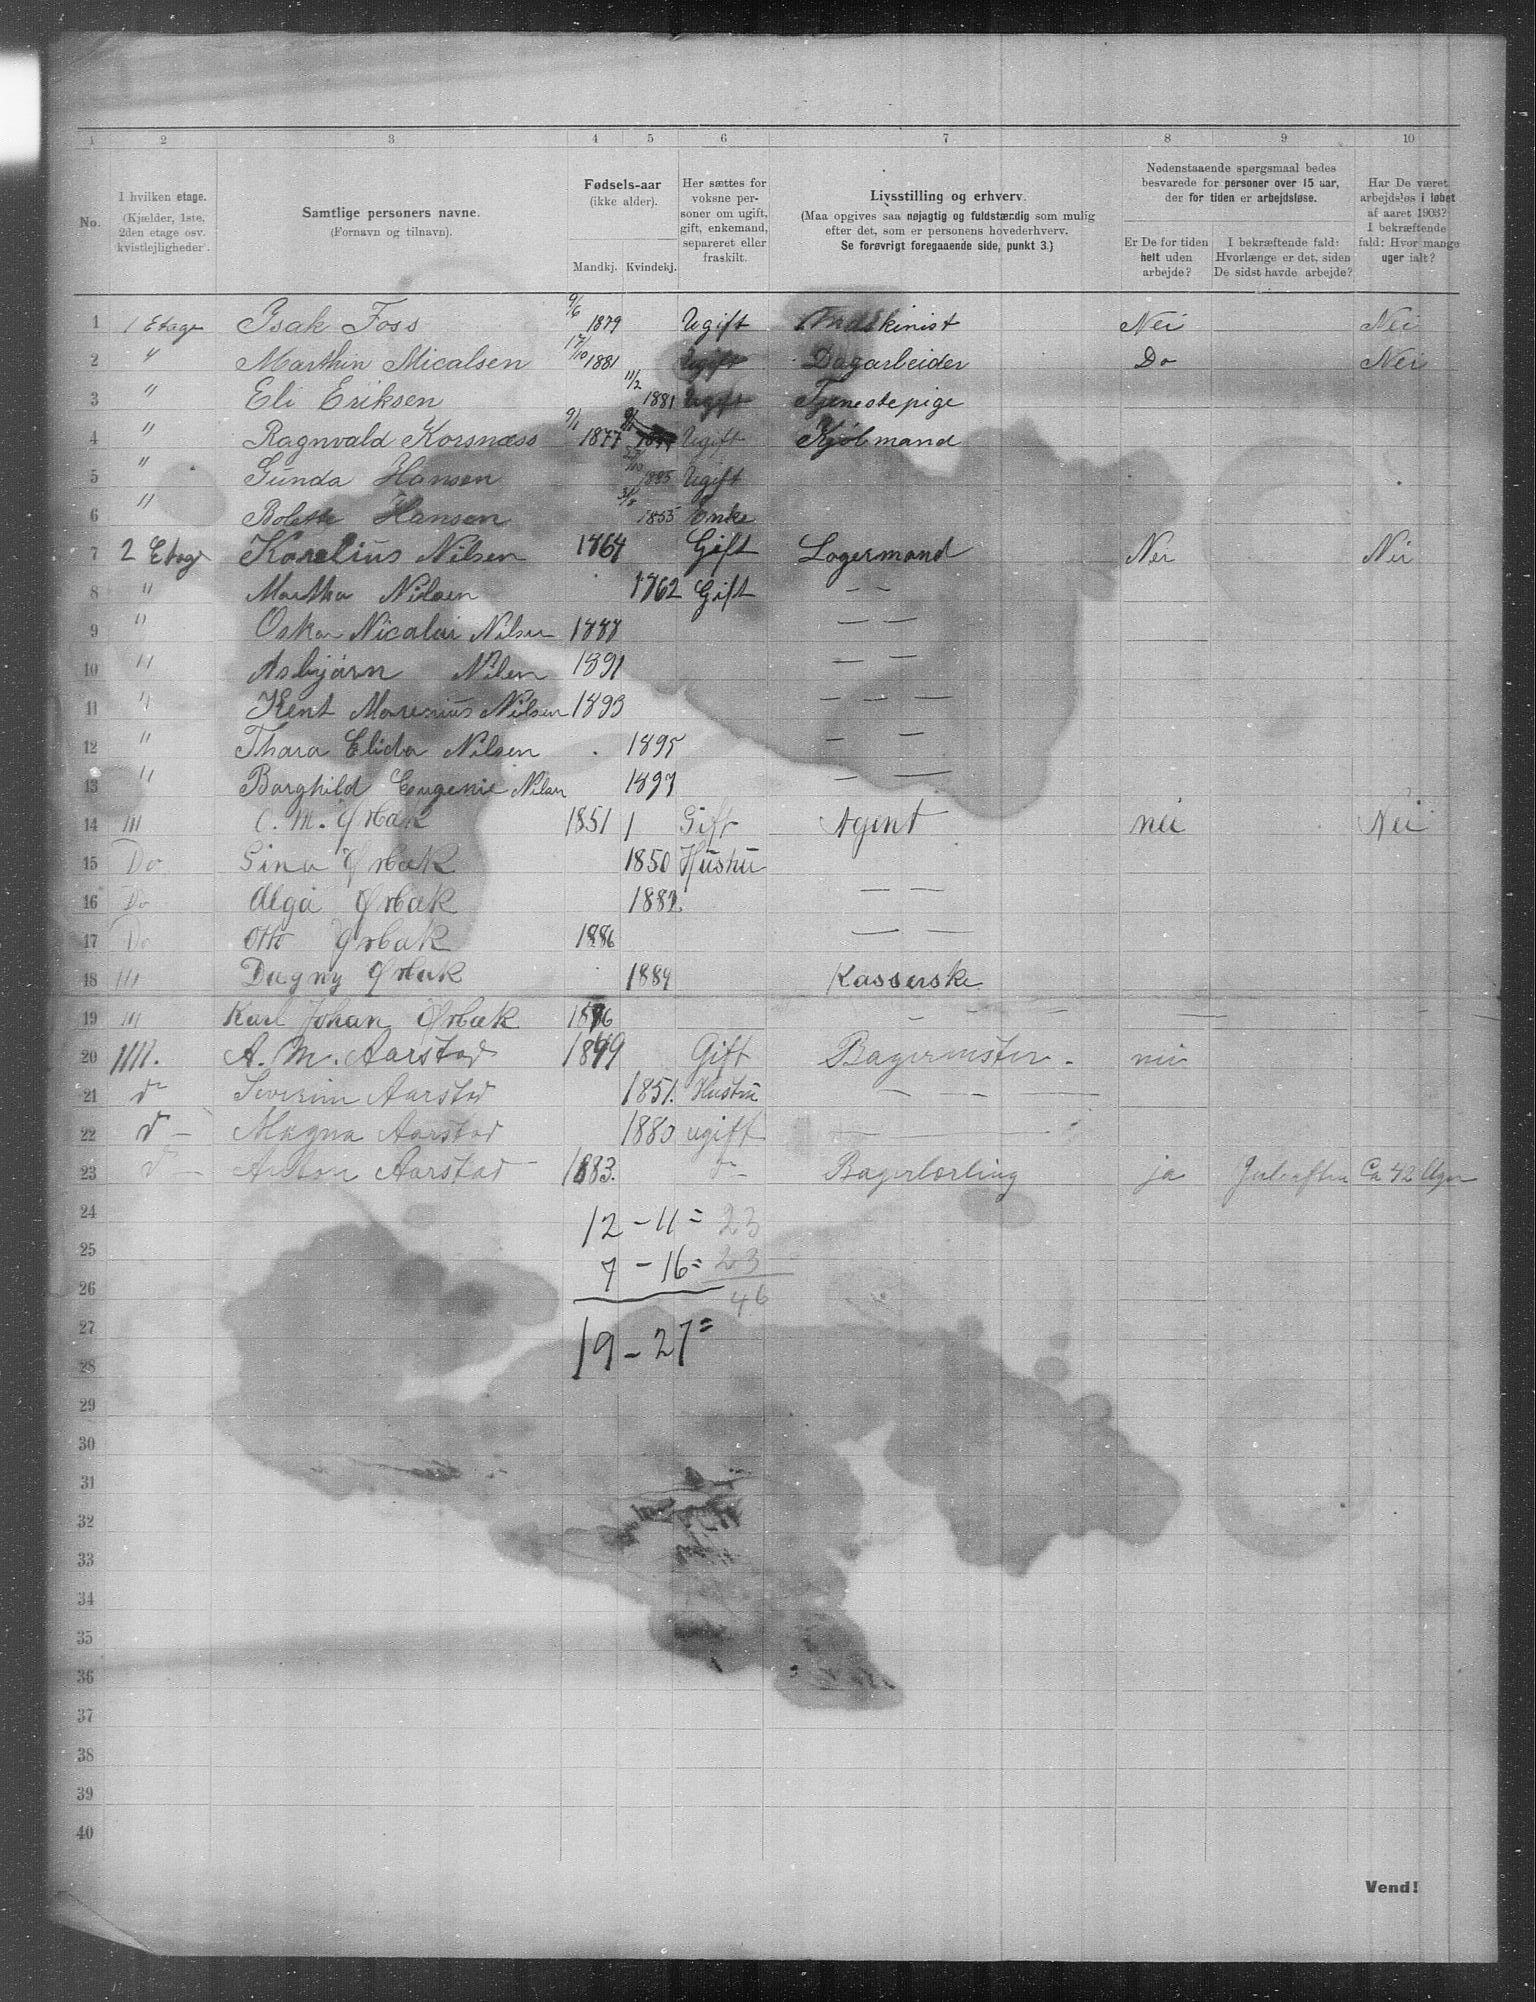 1 2 3 4 5 6 7 8 9 10
No.
I hvilken etage.
(Kjælder, 1ste,
2den etage osv.
kvistlejligheder.
Samtlige personers navne.
(Fornavn og tilnavn).
Fødsels-aar
(ikke alder).
Mandkj. Kvindekj.
Her sættes for
voksne per-
soner om ugift,
gift, enkemand,
separeret eller
fraskilt.
Livsstilling og erhverv.
(Maa opgives saa nøjagtig og fuldstændig som mulig
efter det, som er personens hovederhverv.
Se forøvrigt foregaaende side, punkt 3.)
Nedenstaaende spørgsmaal bedes
besvarede for personer over 15 aar,
der for tiden er arbejdsløse.
Er De for tiden
helt uden
arbejde?
I bekræftende fald:
Hvorlænge er det, siden
De sidst havde arbejde?
Har De været
arbejdsløs i løbet
af aaret 1903?
I bekræftende
fald: Hvor mange
uger ialt?
1 1 Etage Isak Foss 9/6 1879 Ugift Nei Nei
2 " Marthin Micalsen 17/10 1881 Ugift Dagarbeider Do Nei
3 " Eli Eriksen 11/2 1881 Ugift Tjenestepige
4 " Ragnvald Korsnæss 9/1 1877 Ugift Kjøbmand
5 " Gunda Hansen 1885 Ugift
6 " Bolette Hansen 31/8 1855 Enke
7 2 Etag Karelius Nilsen 1864 Gift Lagermand Nei Nei
8 " Martha Nilsen 1862 Gift — —
9 " Oskar Nicolai Nilsen 1888 — —
10 " Asbjørn Nilsen 1891 — —
11 " Kent Marenius Nilsen 1893 — — —
12 " Thara Elida Nilsen 1895 — —
13 " Borghild Eugenie Nilsen 1897 — —
14 III O. M. Ørbæk 1851 1 Gift Agent nei Nei
15 Do Sina Ørbæk 1850 Hustru
16 Do Alga Ørbæk 1882 — —
17 Do Otto Ørbæk 1886 — —
18 III Dagny Ørbæk 1889 Kasserske
19 III Karl Johan Ørbæk 1876 — — —
20 IIII. A. M. Aarstad 1849 Gift Bagermester - nei
21 d Severine Aarstad 1851. Hustru — — —
22 d — Magna Aarstad 1880 ugift — —
23 d — Anton Aarstad 1883. d — Bagerlærling ja Juleaften Ca 42 Uger
24 12 – 11 = 23
25 7 – 16 = 23
26 46
27 19 – 27 =
28
29
30
31
32
33
34
35
36
37
38
39
40
Vend!